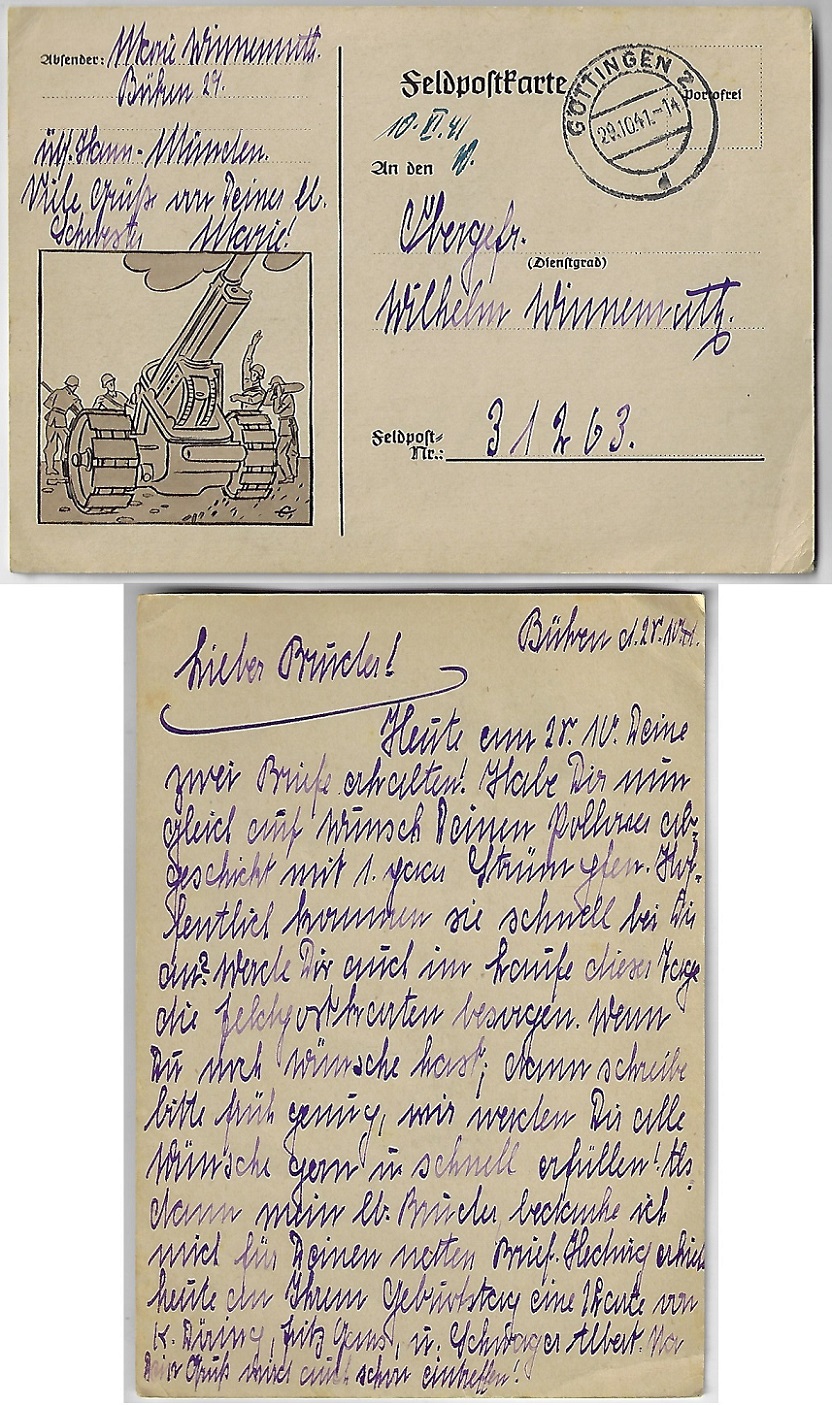 Absender: Marie Winnemuth.
Bühren 27.
üb. Hann.-Münden.
Viele Grüße von Deiner lb.
Schwester Marie!
Feldpostkarte
GÖTTINGEN 2
29.10.41.-14
d
Portofrei
10. XI. 41
An den
Obergefr.
(Dienstgrad)
Wilhelm Winnemuth.
Feldpost-
Nr.: 31263.
Bühren d. 28. 10. 41.
Lieber Bruder!
Heute am 28. 10. Deine
zwei Briefe erhalten! Habe Dir nun
gleich auf Wunsch Deinen Pollover ab-
geschickt mit 1. paar Strümpfen. Hof-
fentlich kommen sie schnell bei Dir
an? Werde Dir auch im Laufe dieser Tage
die Feldpostkarten besorgen. Wenn
Du noch Wünsche hast, dann schreibe
bitte früh genug, wir werden Dir alle
Wünsche gern u. schnell erfüllen! Als
dann mein lb. Bruder, bedanke ich
mich für Deinen netten Brief. Hedwig erhielt
heute an Ihrem Geburtstag eine Karte von
K. Döring, Fritz u. Schwager Albert. Na
Dein Gruß wird auch schon eintreffen!